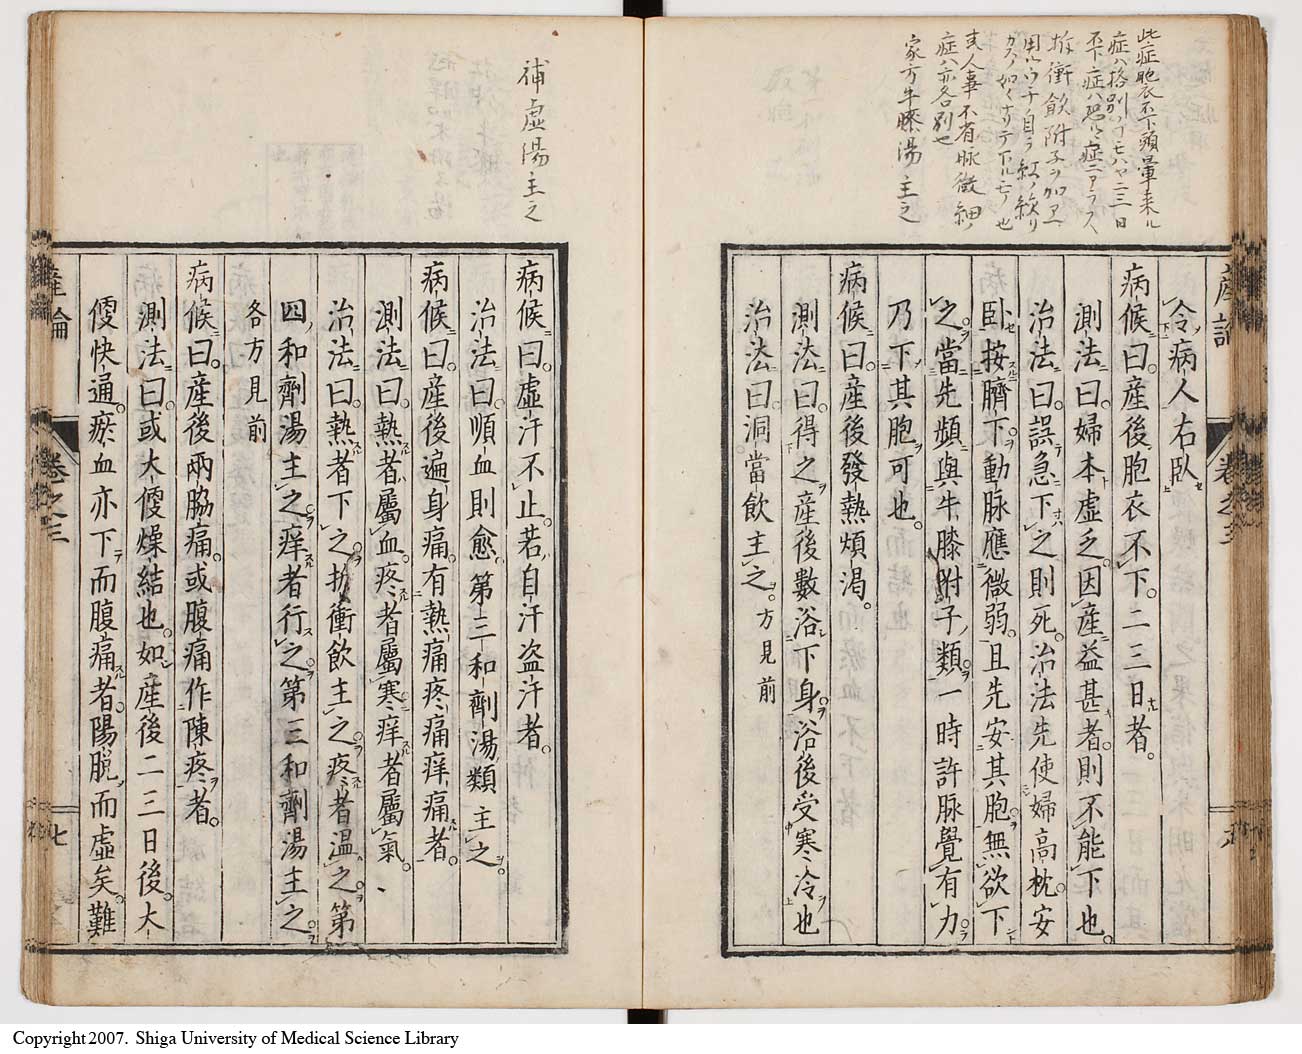 此症胞衣不下頭暈来ル
症ハ格別ノ丁也ハヤ二三日
不下症ハ恐ル症ニアラス
折衝飲附子ヲ加ヱ
用ルウチ自ラ
カスノ如くナリテ下ルモノ也
又人事不省脉微細ノ
症ハ亦各別也
家方牛膝湯主之
産論
卷之三
令病人右臥
病候曰産後胞衣不下二三日者
測法曰婦本虛乏因産益甚者則不能下也
治法曰誤急下之則死治法先使婦高枕安
臥按臍下動脉應微弱且先安其胞無欲下
之當先頻與牛膝附子類一時許脉覺有力
乃下其胞可也
病候曰産後發熱煩渴
測法曰得之産後數浴下身浴後受寒冷也
治法曰洞當飲主之方見前
補虛湯主之
病候曰虛汗不止若自汗盗汗者
治法曰順血則愈第三和劑湯類主之
病候曰産後遍身痛有熱痛疼痛痛痒痛者
測法曰熱者屬血疼者屬寒痒者屬氣
治法曰熱者下之折衝飲主之疼者温之第
四和劑湯主之痒者行之第三和劑湯主之
各方見前
病候曰産後兩脇痛或腹痛作陳疼者
測法曰或大便燥結也如産後二三日後大
便快通瘀血亦下而腹痛者陽脱而虛矣難
産論
卷之三
七
Copyright 2007. Shiga University of Medical Science Library